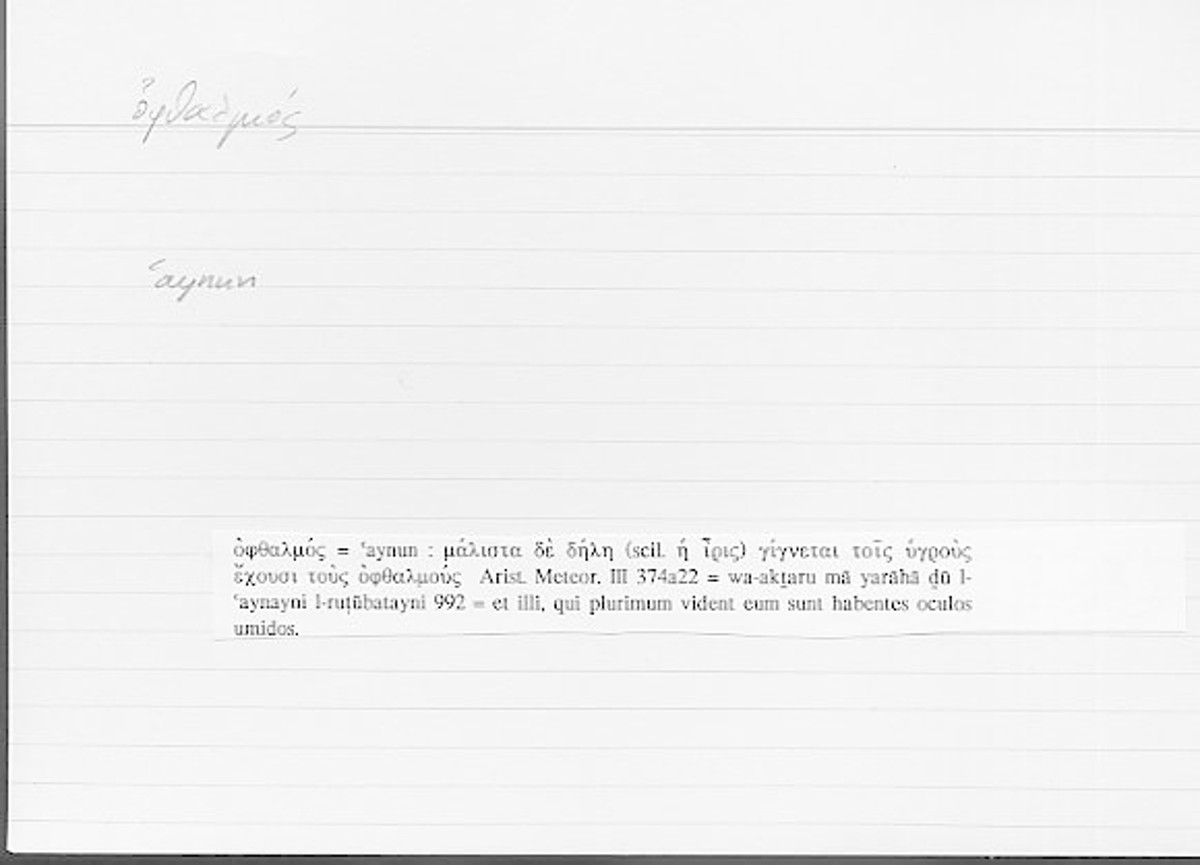 ὀφθαλμός
ʿaynun
ὀφθαλμός = ʿaynun : μάλιστα δὲ δήλη (scil. ἡ ἶρις) γίγνεται τοῖς ὑγροὺς
ἔχουσι τοὺς ὀφθαλμούς Arist. Meteor. III 374a22 = wa-akṯaru mā yarāhā ḏū l-
ʿaynayni l-ruṭūbatayni 992 = et illi, qui plurimum vident eum sunt habentes oculos
umidos.